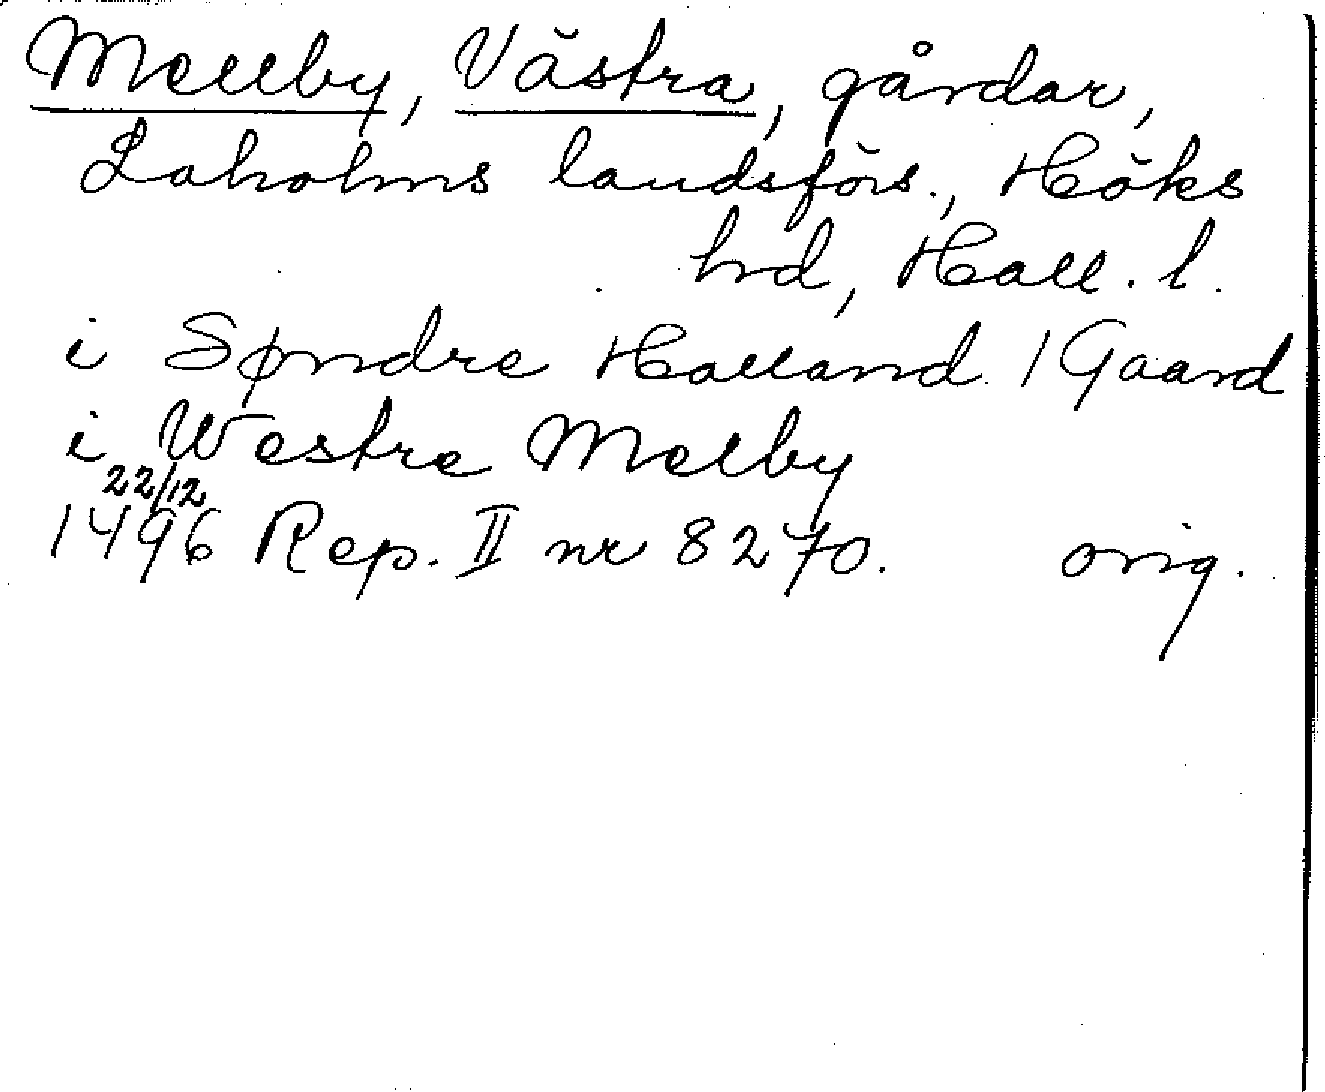 Mellby, Västra, gårdar,
Laholms landsförs., Höks
hrd, Hall. l.
i Søndre Halland 1 Gaard
i Westre Melby
22/12
1496 Rep. II nr 8270. orig.